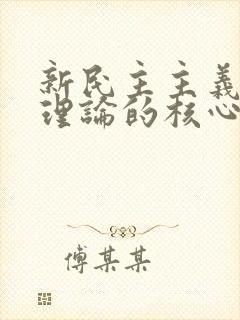 新民主主義
理論的核心
傅某某